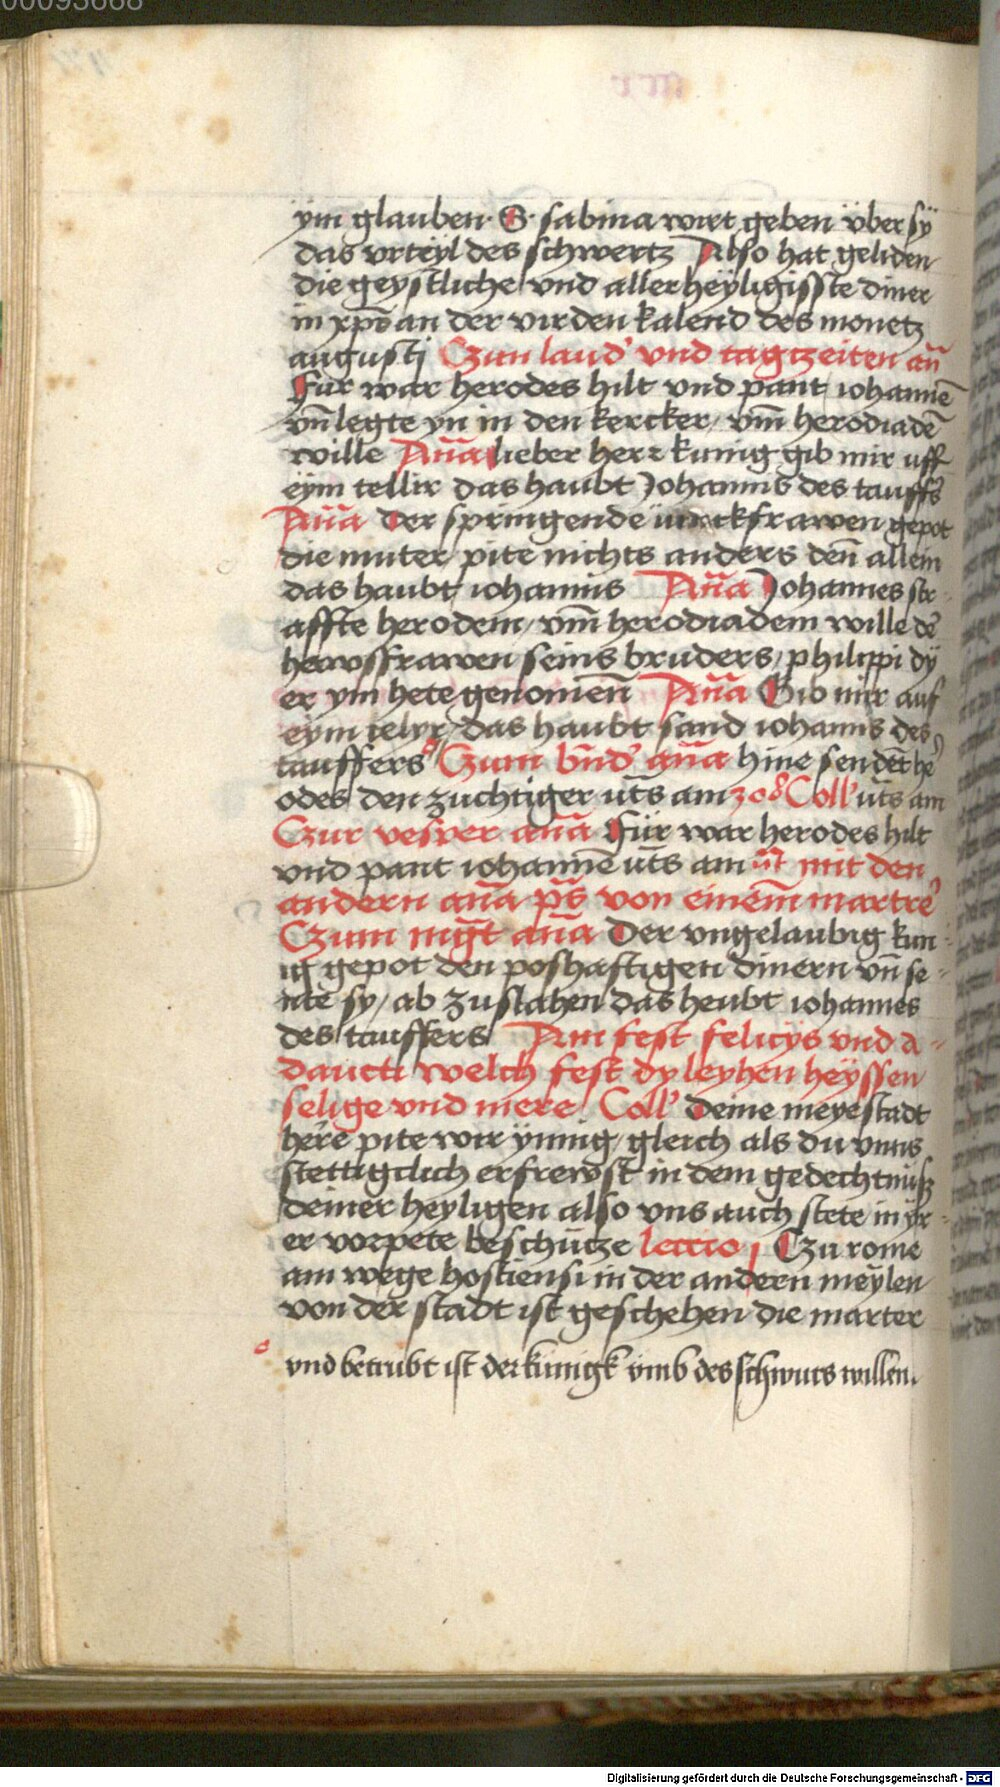 00093668
ÿm glauben· S· sabina wirt geben vber sÿ
das vrteyl des schwertz Also hat geliden
die geystliche vnd allerheyligisste diner
in xpo an der virden kalend des monetz
augustj Czun laud' vnd tagtzeiten an̄
Fur war herodes hilt vnd pant iohannē
vn̄ legte yn in den kercker / vm̄ herodiadē
wille An̄a lieber herr kunig gib mir uff
eym tellir das haubt Johannis des tauffs
An̄a der springende gepot
die muter pite nichts anders den̄ allein
das haubt iohannis An̄a Johannes str-
affte herodem / vm̄ herodiadem wille de'
hawsfrawen seins bruders / philippi dÿ
er ym hete genomen̄ An̄a Gib mir auf
eym telyr / das haubt sand iohanns des
tauffers Czum bn̄d' an̄a hine sendēt he'
odes den zuchtiger ut̄s am 308 Coll' ut̄s am
Czur vesper an̄a Fur war herodes hilt
vnd pant iohannē ut̄s am ut̄ mit den
andern an̄a ps̄ von einem̄ martre'
Czum mgt̄ an̄a Der vngelaubig kun-
ig gepot den poshaftigen dinern vn̄ se-
nte sy / ab zuslahen das heubt iohannes
des tauffers Am fest felicÿs vnd a-
daucti welch fest dy leyhen heyssen
selige vnd mere Coll' Deine meyestadt
he're pite wir ÿnnig / gleich als du vnns
stettigclich erfrewst in dem gedechtnusz
deiner heyligen also vns auch stete in ÿr-
er vorpete beschutze leccio j Czu rome
am wege hostiensi in der andern meylen
von der stadt ist geschehen die marter
vnd betrubt ist der kunigk vmb des schwurs willen.
Digitalisierung gefördert durch die Deutsche Forschungsgemeinschaft - DFG